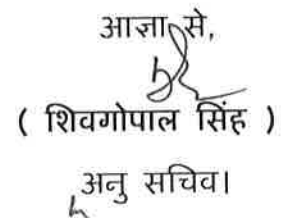 आज्ञा से,
( शिवगोपाल सिंह )
अनु सचिव।